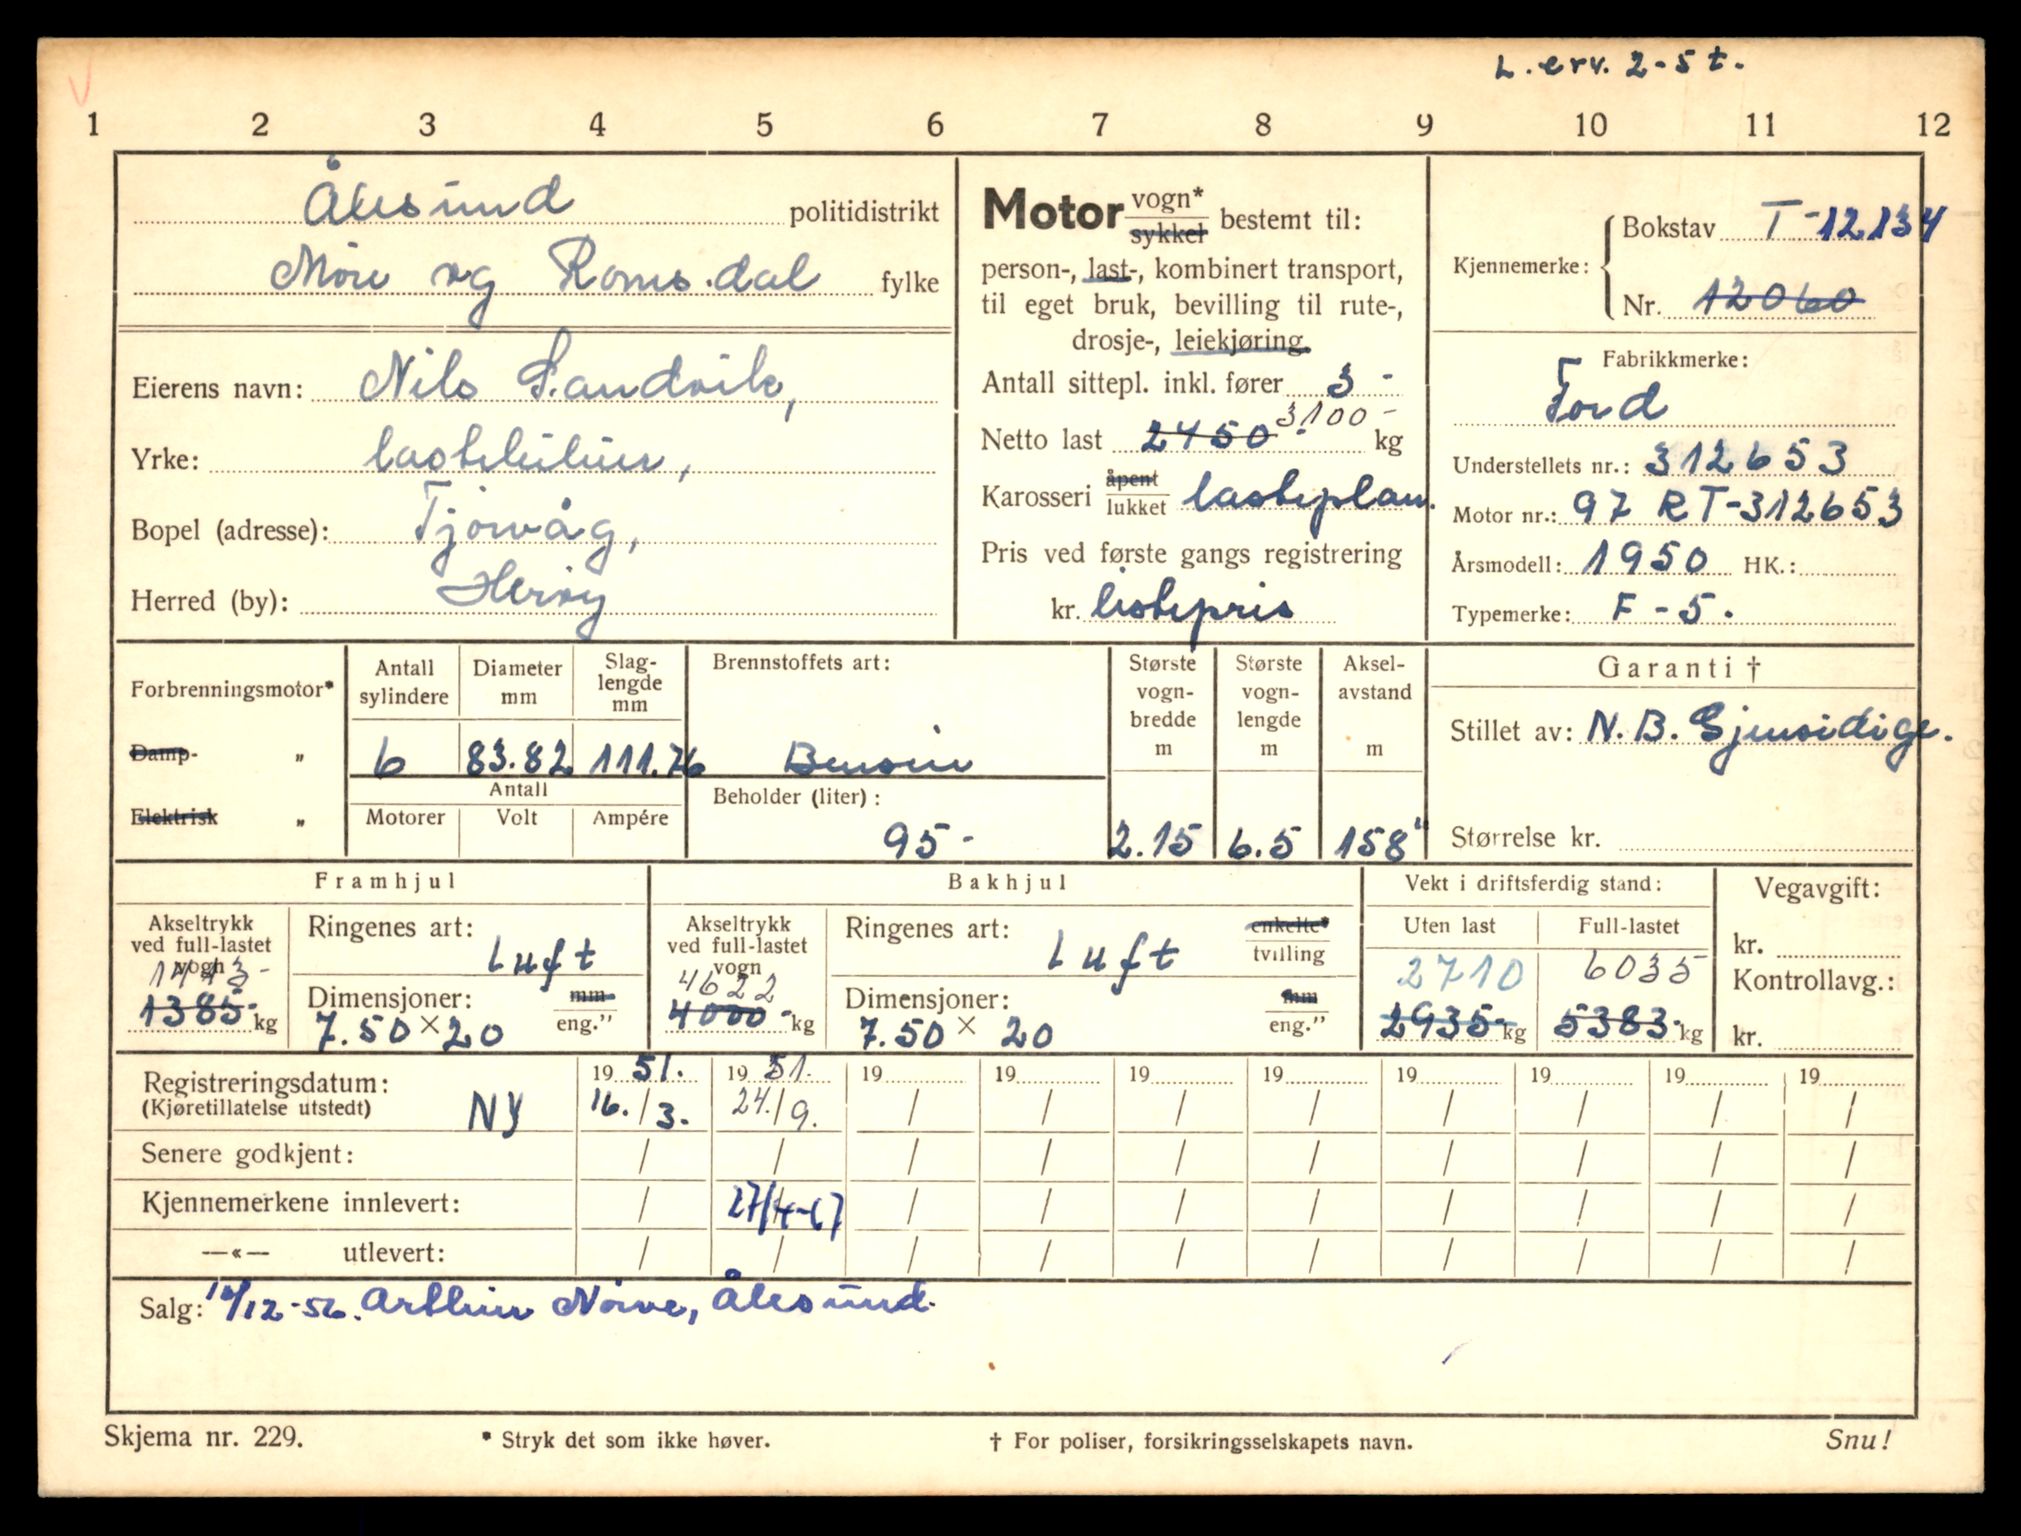 L. erv. 2-5 t.
1 2 3 4 5 6 7 8 9 10 11 12
Ålesund politidistrikt
Möre og Romsdal fylke
Eierens navn: Nils Sandvik,
Yrke: lastebileier,
Bopel (adresse): Tjørvåg,
Herred (by): Herøy
Motor vogn* sykkel bestemt til:
person-, last-, kombinert transport,
til eget bruk, bevilling til rute-,
drosje-, leiekjøring.
Antall sittepl. inkl. fører 3 -
3100 -
Netto last 2450 - kg
Karosseri åpent lukket lasteplan.
Pris ved første gangs registrering
kr. listepris
Kjennemerke: Bokstav T-12134
Nr. 12060
Fabrikkmerke:
Ford
Understellets nr.: 312653
Motor nr.: 97 RT-312653
Årsmodell: 1950 HK.:
Typemerke: F - 5.
Forbrenningsmotor*
Damp- „
Elektrisk „
Antall sylindere 6
Diameter mm 83.82
Slaglengde mm 111.76
Antall
Motorer Volt Ampére
Brennstoffets art:
Bensin
Beholder (liter):
95 -
Største vognbredde m 2.15
Største vognlengde m 6.5
Akselavstand m 158"
Garanti †
Stillet av: N.B. Gjensidige.
Størrelse kr.
Framhjul
Akseltrykk ved full-lastet vogn
1413 -
1385 - kg
Ringenes art: Luft
Dimensjoner: mm eng."
7.50 × 20
Bakhjul
Akseltrykk ved full-lastet vogn
4622
4000 - kg
Ringenes art: Luft enkelte* tvilling
Dimensjoner: mm eng."
7.50 × 20
Vekt i driftsferdig stand:
Uten last Full-lastet
2710 6035
2935- kg 5383- kg
Vegavgift:
kr.
Kontrollavg.:
kr.
Registreringsdatum: 19 51. 19 51. 19 19 19 19 19 19 19 19
(Kjøretillatelse utstedt) NY 16./3. 24./9. / / / / / / / /
Senere godkjent: / / / / / / / / / /
Kjennemerkene innlevert: / 27/4-67 / / / / / / / /
—«— utlevert: / / / / / / / / / /
Salg: /12-56. Arthur Nörve, Ålesund.
Skjema nr. 229. * Stryk det som ikke høver. † For poliser, forsikringsselskapets navn. Snu!